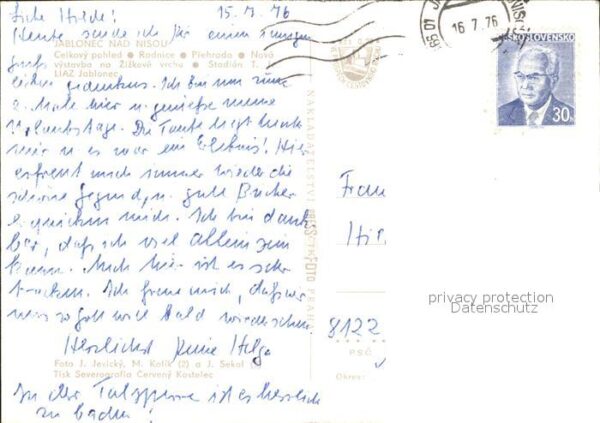 Liebe Hilde! 15.7.76
Heute sende ich Dir einen
JABLONEC NAD NISOU
Celkový pohled • Radnice • Přehrada • Nová
výstavba na Žižkově vrchu • Stadión T. J.
LIAZ Jablonec
Ich bin nun zum
2. Male hier u. genieße meine
Urlaubstage. Die
war u es war ein Erlebnis! Hier
erfreut mich immer wieder die
schöne Gegend, u. gute Bücher
erquicken mich. Ich bin dank-
bar, daß ich viel allein sein
kann. Auch hier ist es sehr
trocken. Ich freue mich, daß wir
uns so Gott will bald wiedersehen.
Herzlichst Deine Helga
Foto J. Jevický, M. Kořík (2) a J. Sekal
Tisk Severografia Červený Kostelec
In der Talsperre ist es herrlich
zu baden!
NAKLADATELSTVÍ PRESSFOTO PRAHA
16.7.76
ČESKOSLOVENSKO
30h
Frau
Hil
8122
PSČ
Okres:
privacy protection
Datenschutz